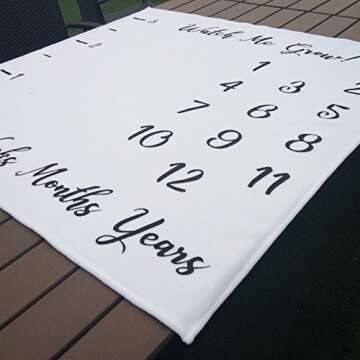 Watch Me Grow!
1 2
4 3
7 6 5
10 9 8
12 11
Months Years
1
2
3